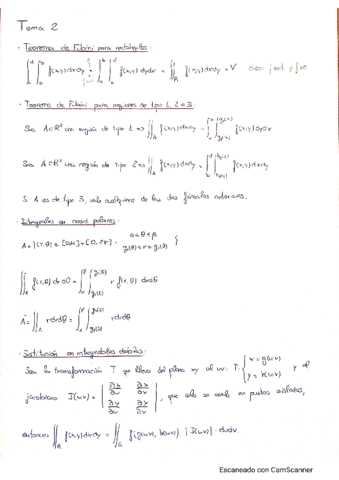 Tema 2
· Teorema de Fubini para rectángulos:
∫_c^d ∫_a^b f(x,y) dxdy = ∫_a^b ∫_c^d f(x,y) dydx = ∬_R f(x,y) dxdy = V
· Teorema de Fubini para regiones de tipo 1, 2 o 3:
Sea A⊂R² una región de tipo 1 => ∬_A f(x,y) dxdy = ∫∫ f(x,y) dydx
Sea A⊂R² una región de tipo 2 => ∬_A f(x,y) dxdy = ∫∫ f(x,y) dxdy
Si A es de tipo 3, vale cualquiera de las dos fórmulas anteriores.
· Integrales en coord. polares:
A = {(r,θ) ∈ [0,∞) × [0,2π] : α ≤ θ ≤ β g₁(θ) ≤ r ≤ g₂(θ) }
∬ f(r,θ) dr dθ = ∫_α^β ∫_{g₁(θ)}^{g₂(θ)} r f(r,θ) drdθ
A = ∬_A r drdθ = ∫_α^β ∫_{g₁(θ)}^{g₂(θ)} r drdθ
· Sustitución en integrales dobles:
Sea la transformación T que lleva del plano xy al uv: T: { x = g(u,v) y = h(u,v) y el
jacobiano J(u,v) = , que sólo se anula en puntos aislados,
entonces ∬_R f(x,y) dxdy = ∬_G f(g(u,v), h(u,v)) |J(u,v)| · dudv.
Escaneado con CamScanner